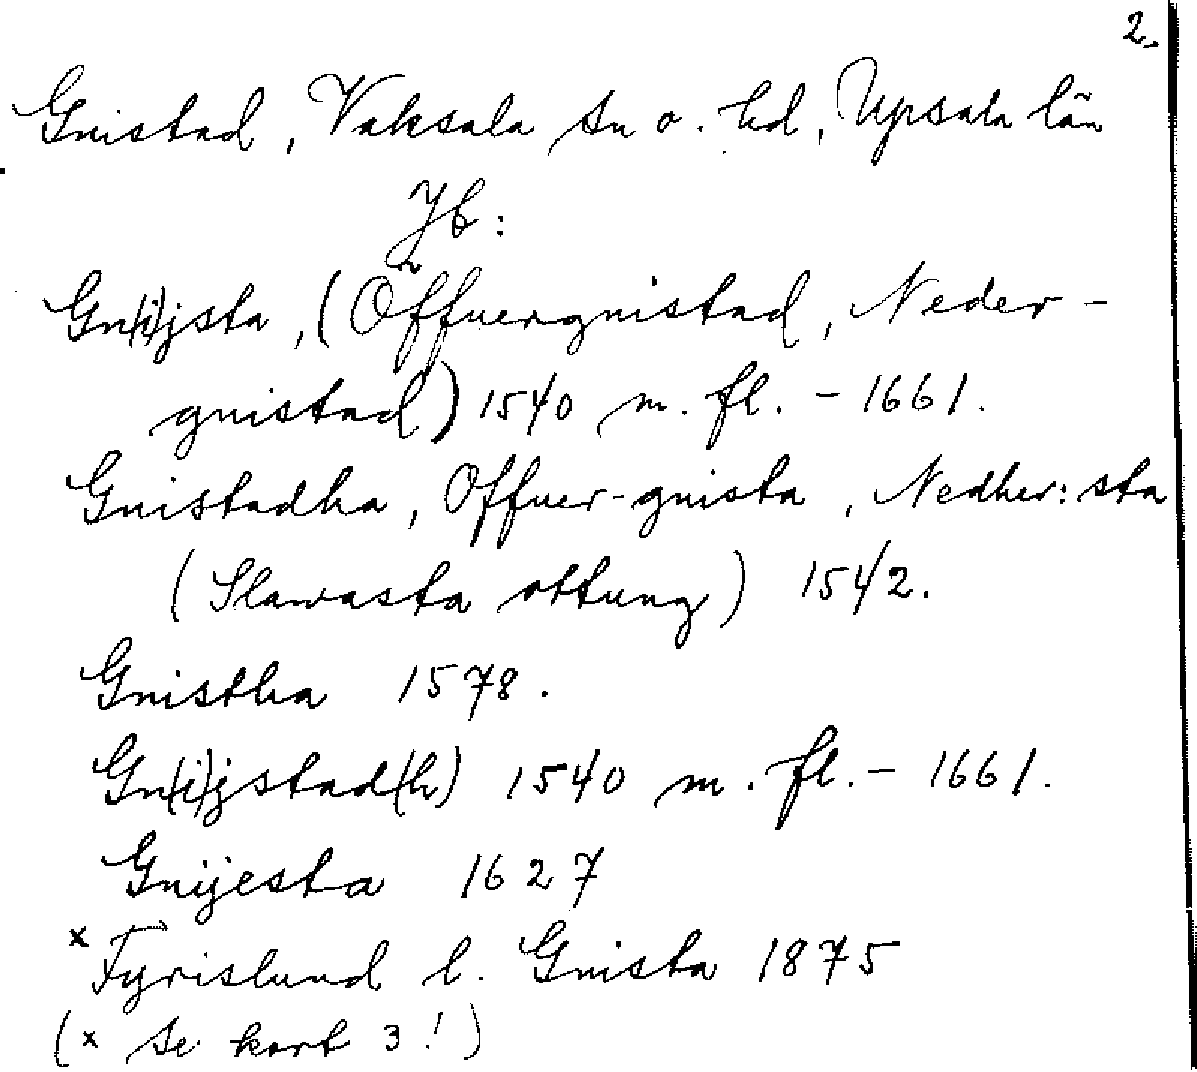 2.
Gnistad, Vaksala sn o. hd, Upsala län
Jb:
Gn(i)jsta, (Öffuergnistad, Neder-
gnistad) 1540 m. fl. - 1661.
Gnistadha, Offuer-gnista, Nedher: sta
(Slawasta ottung) 1542.
Gnistha 1578.
Gn(i)jstad(h) 1540 m. fl. - 1661.
Gnijesta 1627
x Fyrislund l. Gnista 1875
(x se kort 3!)